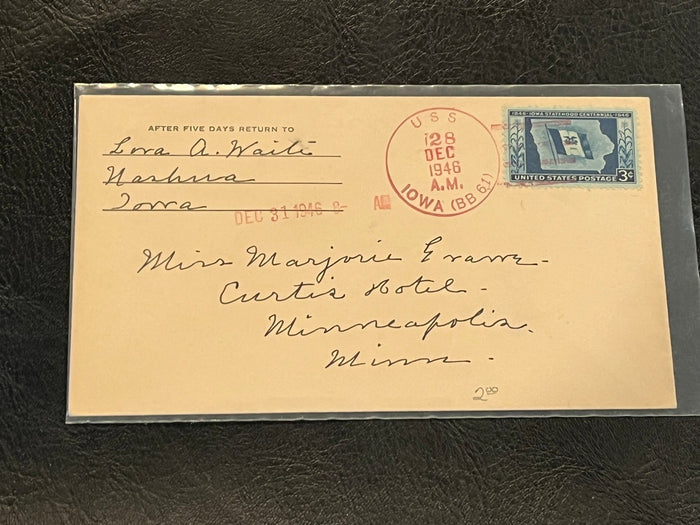 AFTER FIVE DAYS RETURN TO
Lora A. Waite
Nashua
Iowa
DEC 31 1946 8-
USS
28
DEC
1946
A.M.
IOWA (BB 61)
1846-IOWA STATEHOOD CENTENNIAL-1946
UNITED STATES POSTAGE 3¢
Miss Marjorie
Curtis Hotel -
Minneapolis.
Minn -
2.00